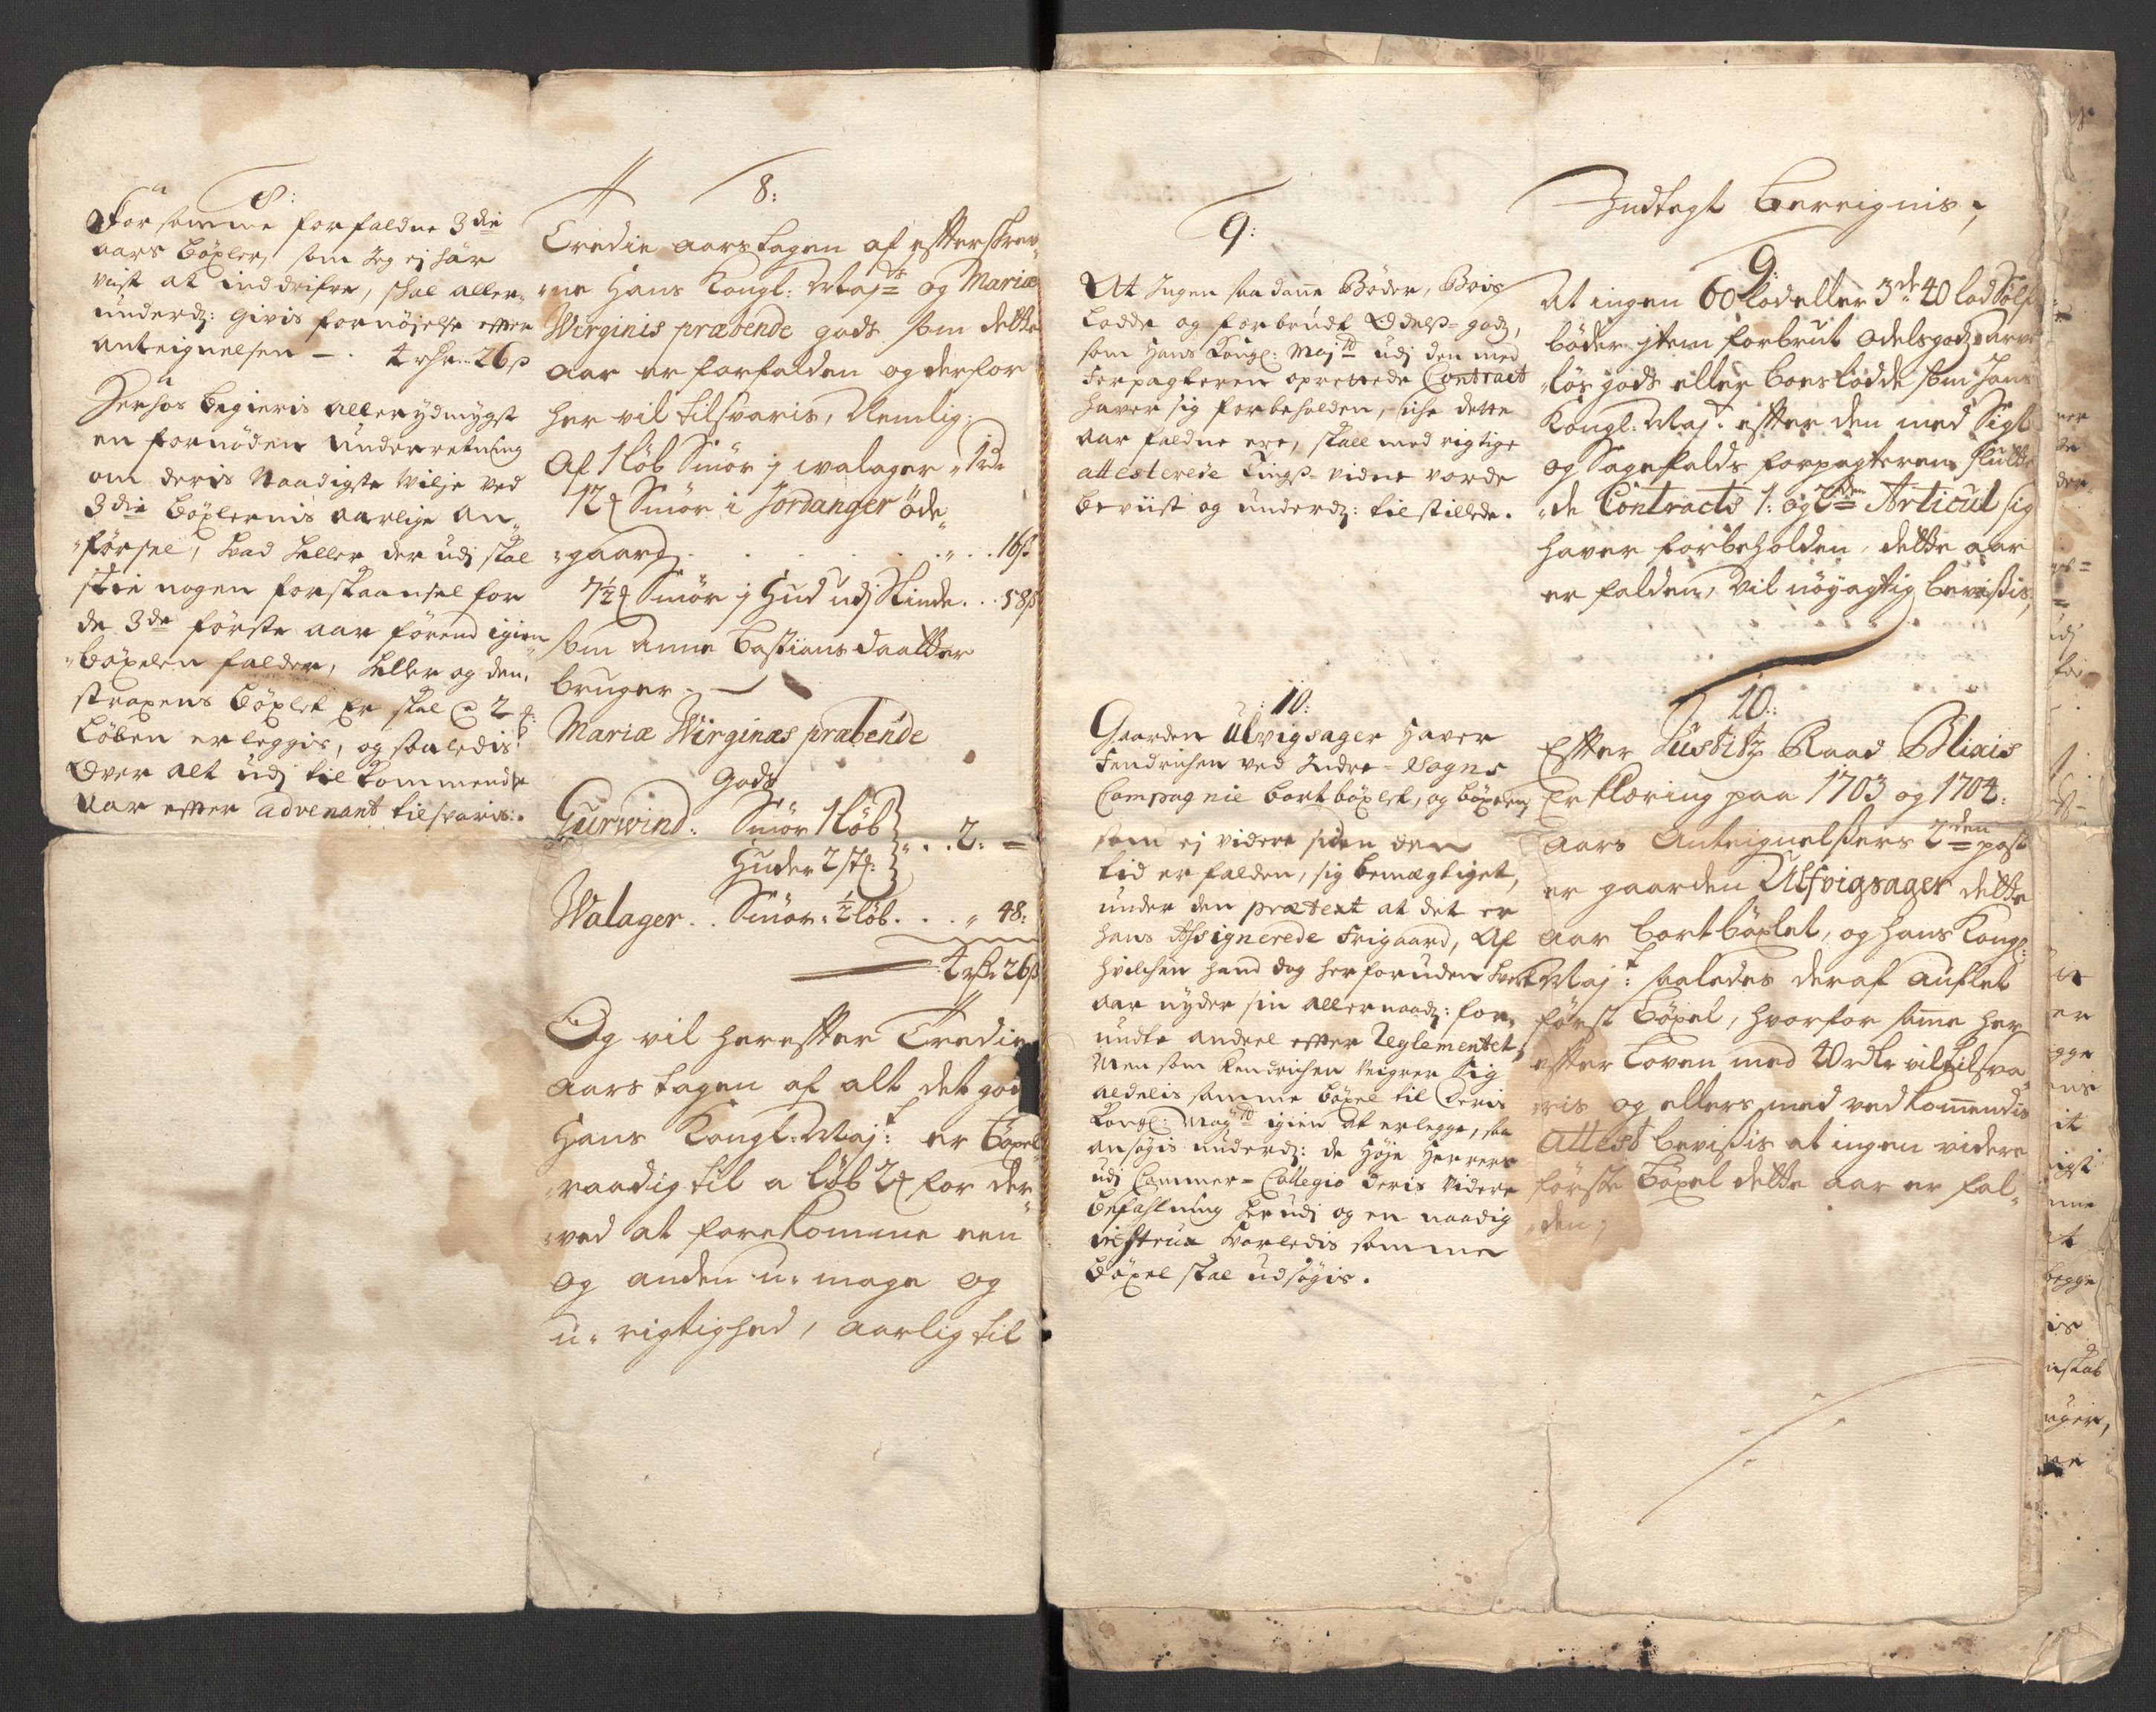 8:
For samme forfaldne 3die
aars böxler, som Jeg ej har
vist at inddrifve, skal aller-
underd: givis fornöjelse efter
anteignelsen - . 4 rdr 26 s
Herhos begieris allerydmygst
en fornöden underretning
om deris Naadigste Vilje ved
3die böxlernis aarlige an-
försel, hvad heller der udj skal
skee nogen forskaansel for
de 3de förste aar förend igien
böxelen falder, heller og den
straxens böxlet er skal a 2 
löben erleggis, og saaledis
over alt udj tilkommende
aar efter advenant tilsvaris.
8:
Tredie aars tagen af efterskrev-
ne Hans Kongl: Majts og Mariæ
Virginis præbende gods som dette
aar er forfalden og derfor
her vil tilsvaris, Nemlig.
Af 1 löb Smör j walager
12 Smör i Jordanger öde
gaard . . . . 16 s
7½ Smör j Hud udj Kinde . . 58 s
som Anne Bastians daatter
bruger -
Mariæ Wirginæs præbende
Gods
Gurwind: Smör 1 löb
Huder 2 st: . . 2: =
Walager . . Smör ½ löb . . . 48:
4 rd 26 s
Og vil herefter Tredie
aars tagen af alt det gods
Hans Kongl: Maj:t er böxel-
raadig til a löb 2 for der
ved at forekomme een
og anden u-mage og
u-rigtighed, aarlig til
9:
At Ingen saadane Böder, Boes
lodde og forbrudt Odels-gods,
som Hans Kongl: Majtt udj den med
Forpagteren oprettede Contract
haver sig forbeholden, siche dette
aar faldne ere, skall med rigtige
attesterede Tings-vidne vorde
beviist og underd: tilstillede.
10:
Gaarden Ulvigsager haver
Fendrichen ved Indre-Sogns
Compagnie bortböxlet, og böxelen
som ej videre siden den
tid er falden, sig bemægtiget,
under den prætext at det er
hans Assignerede Frigaard, Af
hvilchen hand dog her foruden hvert
aar nyder sin allernaad: for-
undte andeel efter Reglementet;
Men som Fendrichen veigrer sig
aldelis samme böxel til Deris
Kongl: Maytt igien at erlegge, saa
ansögis underd: de Höje Herrers
udj Cammer-Collegio deris videre
befahlning herudj og en naadig
instrux hvorledis samme
böxel skal udsögis.
Indtegt Bereignis;
9:
At ingen 60 lod eller 3de 40 lod Sölf
böder jtem forbrut odelsgods arve
lös gods eller boeslodde som Hans
Kongl: Maj:t efter den med Sigt
og Sagefalds forpagteren slutte-
de Contracts 1: og 2den Articul sig
haver forbeholden, dette aar
er falden, vil nöyagtig bevisis,
10:
Efter Justitz Raad Bliais
Erklæring paa 1703 og 1704:
Aars Anteignelsers 2den post
er gaarden Ulfvigsager dette
aar bortböxlet, og Hans Kongl:
Maj:t saaledes deraf auflet
först böxel, hvorfor same her
efter loven med 40 rdlr vil tilsva-
ris og ellers med vedkommendis
Attest bevisis at ingen videre
förste böxel dette aar er fal-
den;